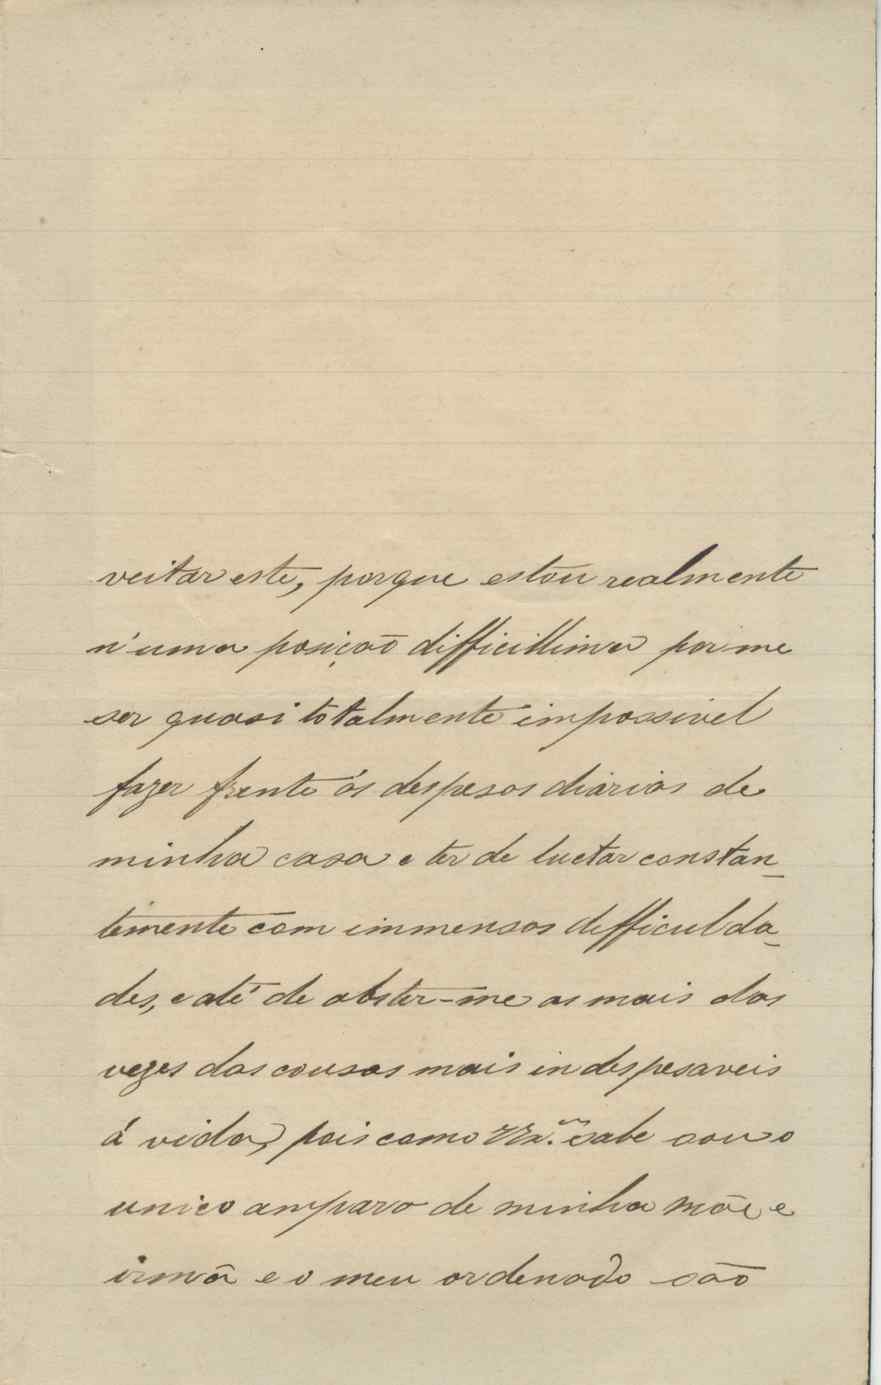 veitar este, porque estou realmente
n'uma posição difficillima por me
ser quasi totalmente impossivel
fazer frente ás despesas diarias de
minha casa e ter de luctar constan-
temente com immensas difficulda-
des, e até de abster-me as mais das
vezes das cousas mais indespesaveis
á vida, pois como V Ex.cia sabe sou o
unico amparo de minha mãe e
irmã e o meu ordenado são